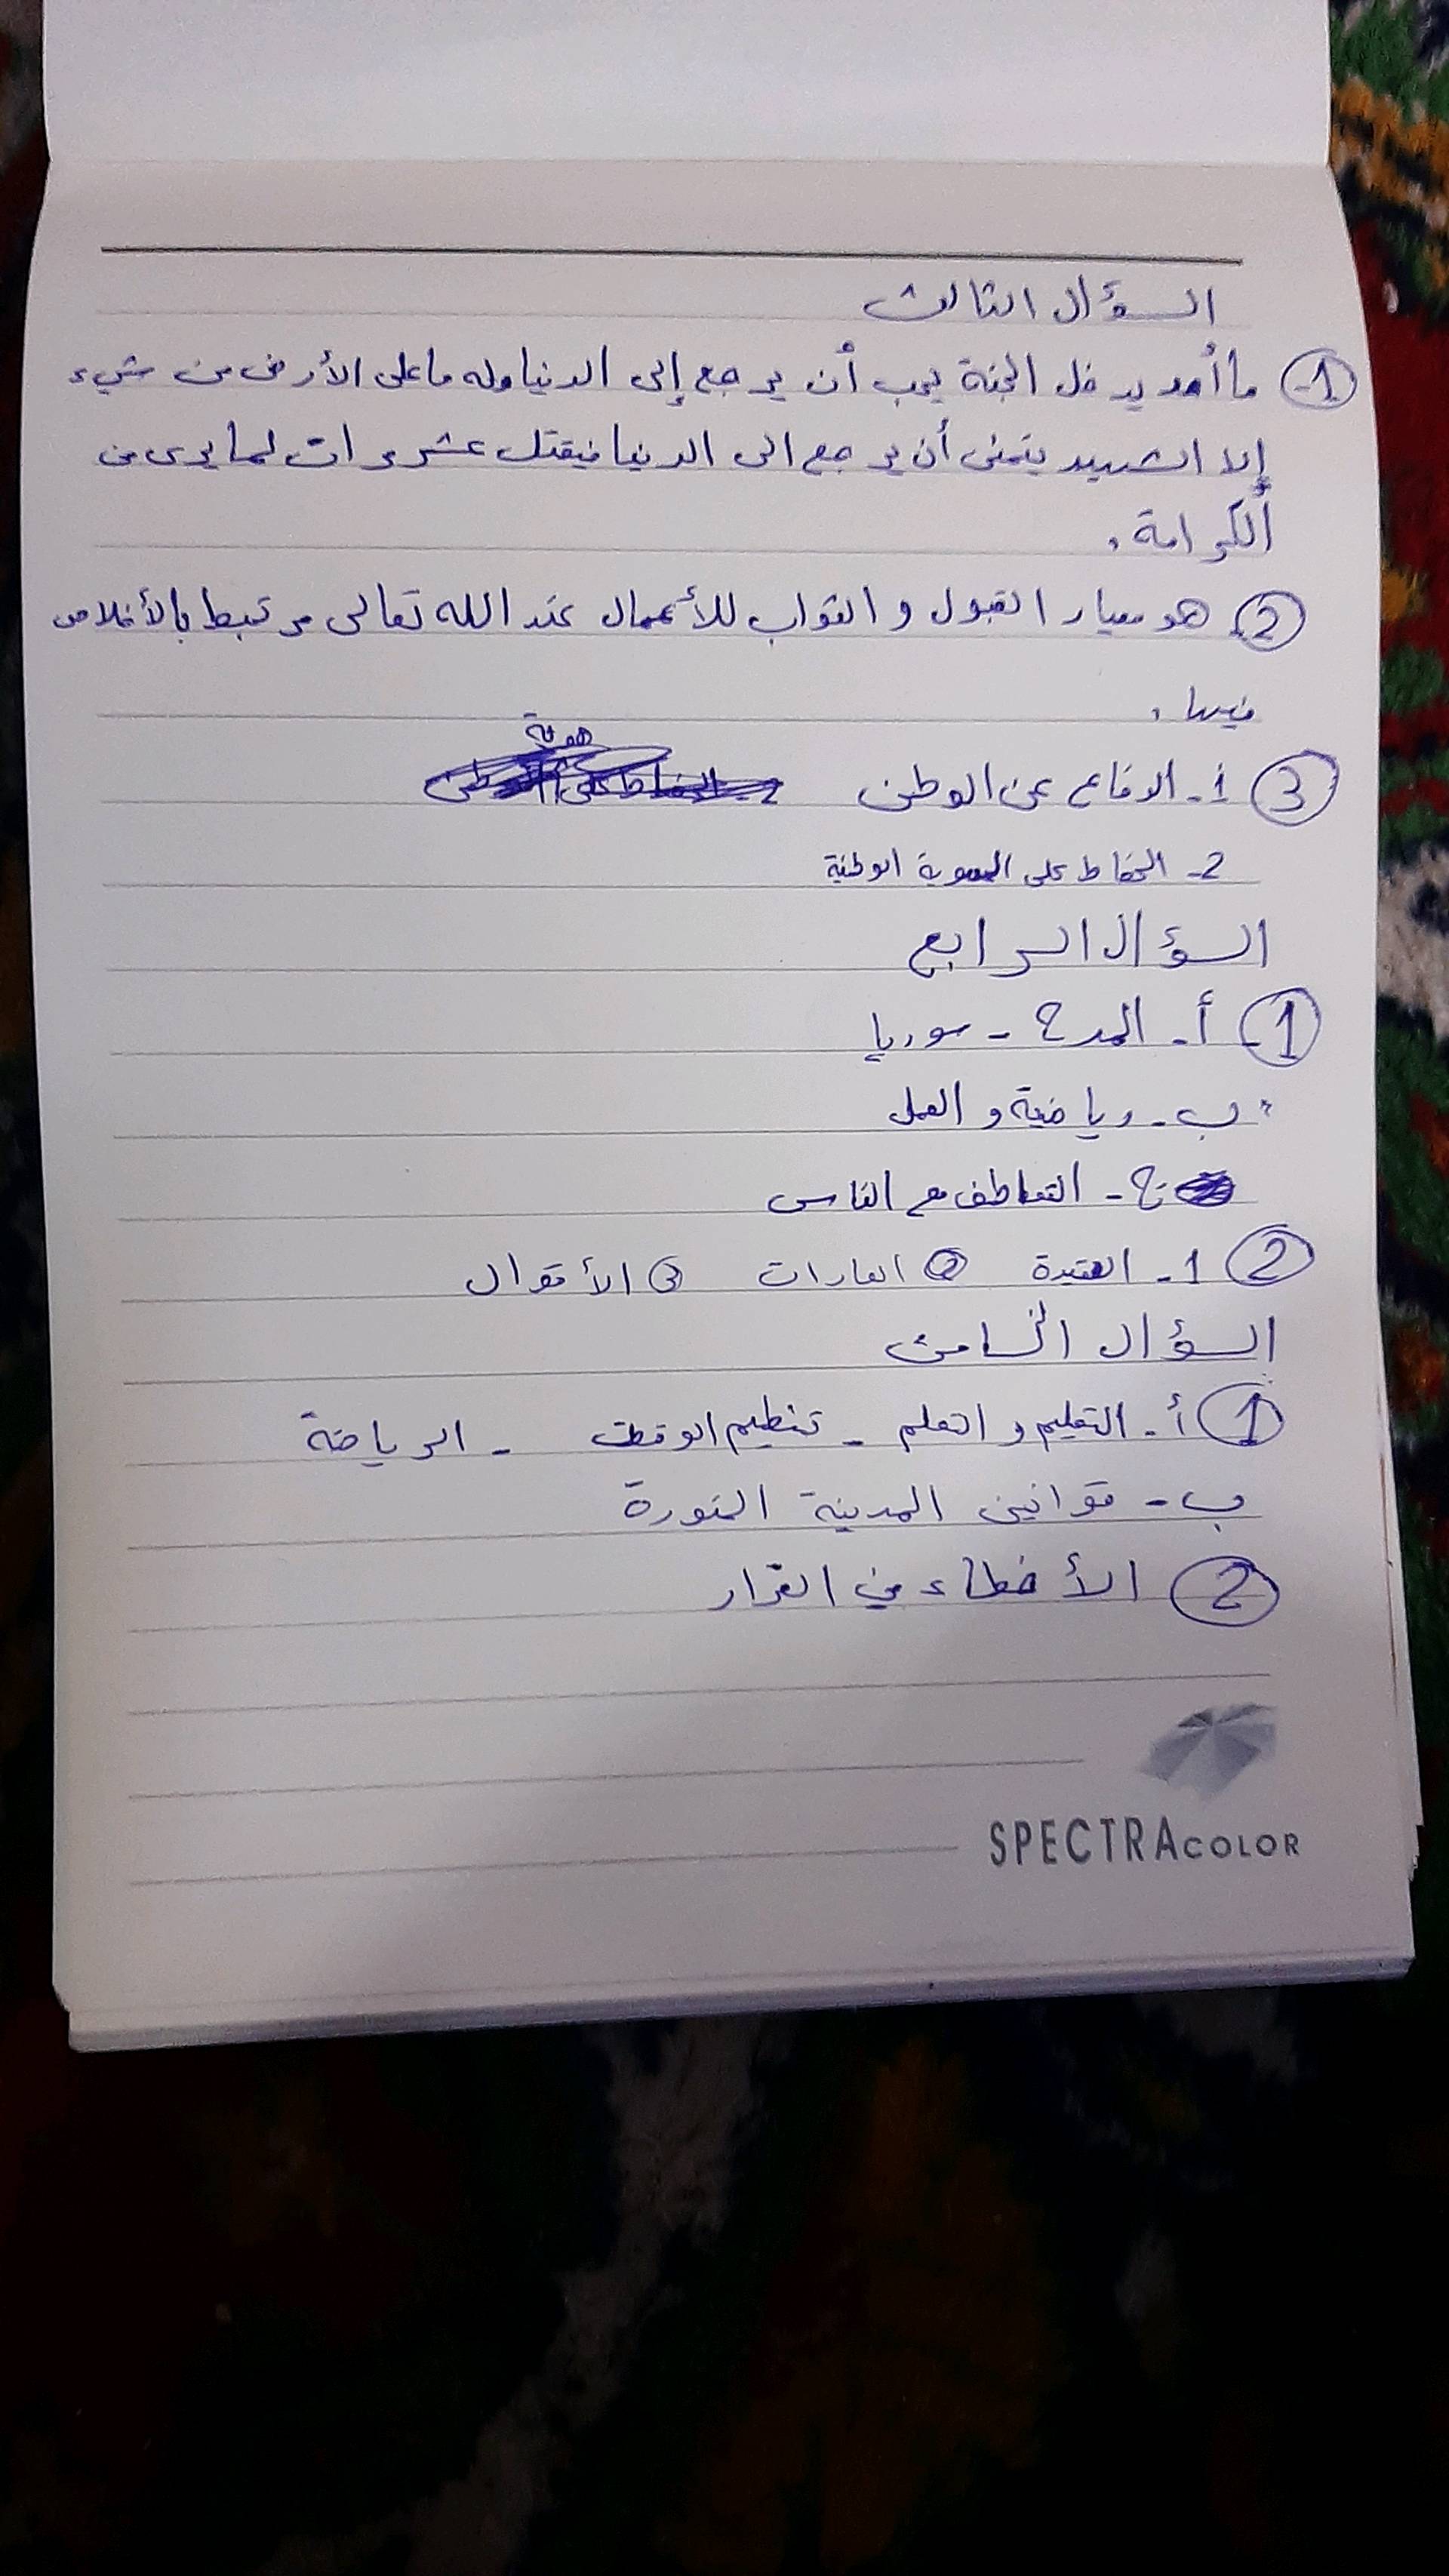 السؤال الثالث
1- ما أحد يدخل الجنة يحب أن يرجع إلى الدنيا وله ما على الأرض من شيء
إلا الشهيد يتمنى أن يرجع الى الدنيا فيقتل عشر مرات لما يرى من
الكرامة.
2- هو معيار القبول و الثواب للأعمال عند الله تعالى مرتبط بالأخلاص
فيها.
3 1- الدفاع عن الوطن
2- الحفاظ على الهوية الوطنية
السؤال الرابع
1- أ- المدح - سوريا
ب- رياضية و العمل
ج- التعاطف مع الناس
2 1- العقيدة 2 العادات 3 الأقوال
السؤال الخامس
1 أ- التعليم و التعلم - تنظيم الوقت - الرياضة
ب- قوانين المدينة المنورة
2 الأخطاء في القرار
SPECTRACOLOR